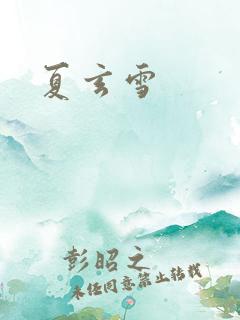 夏玄雪
彭昭之
未经同意禁止转载